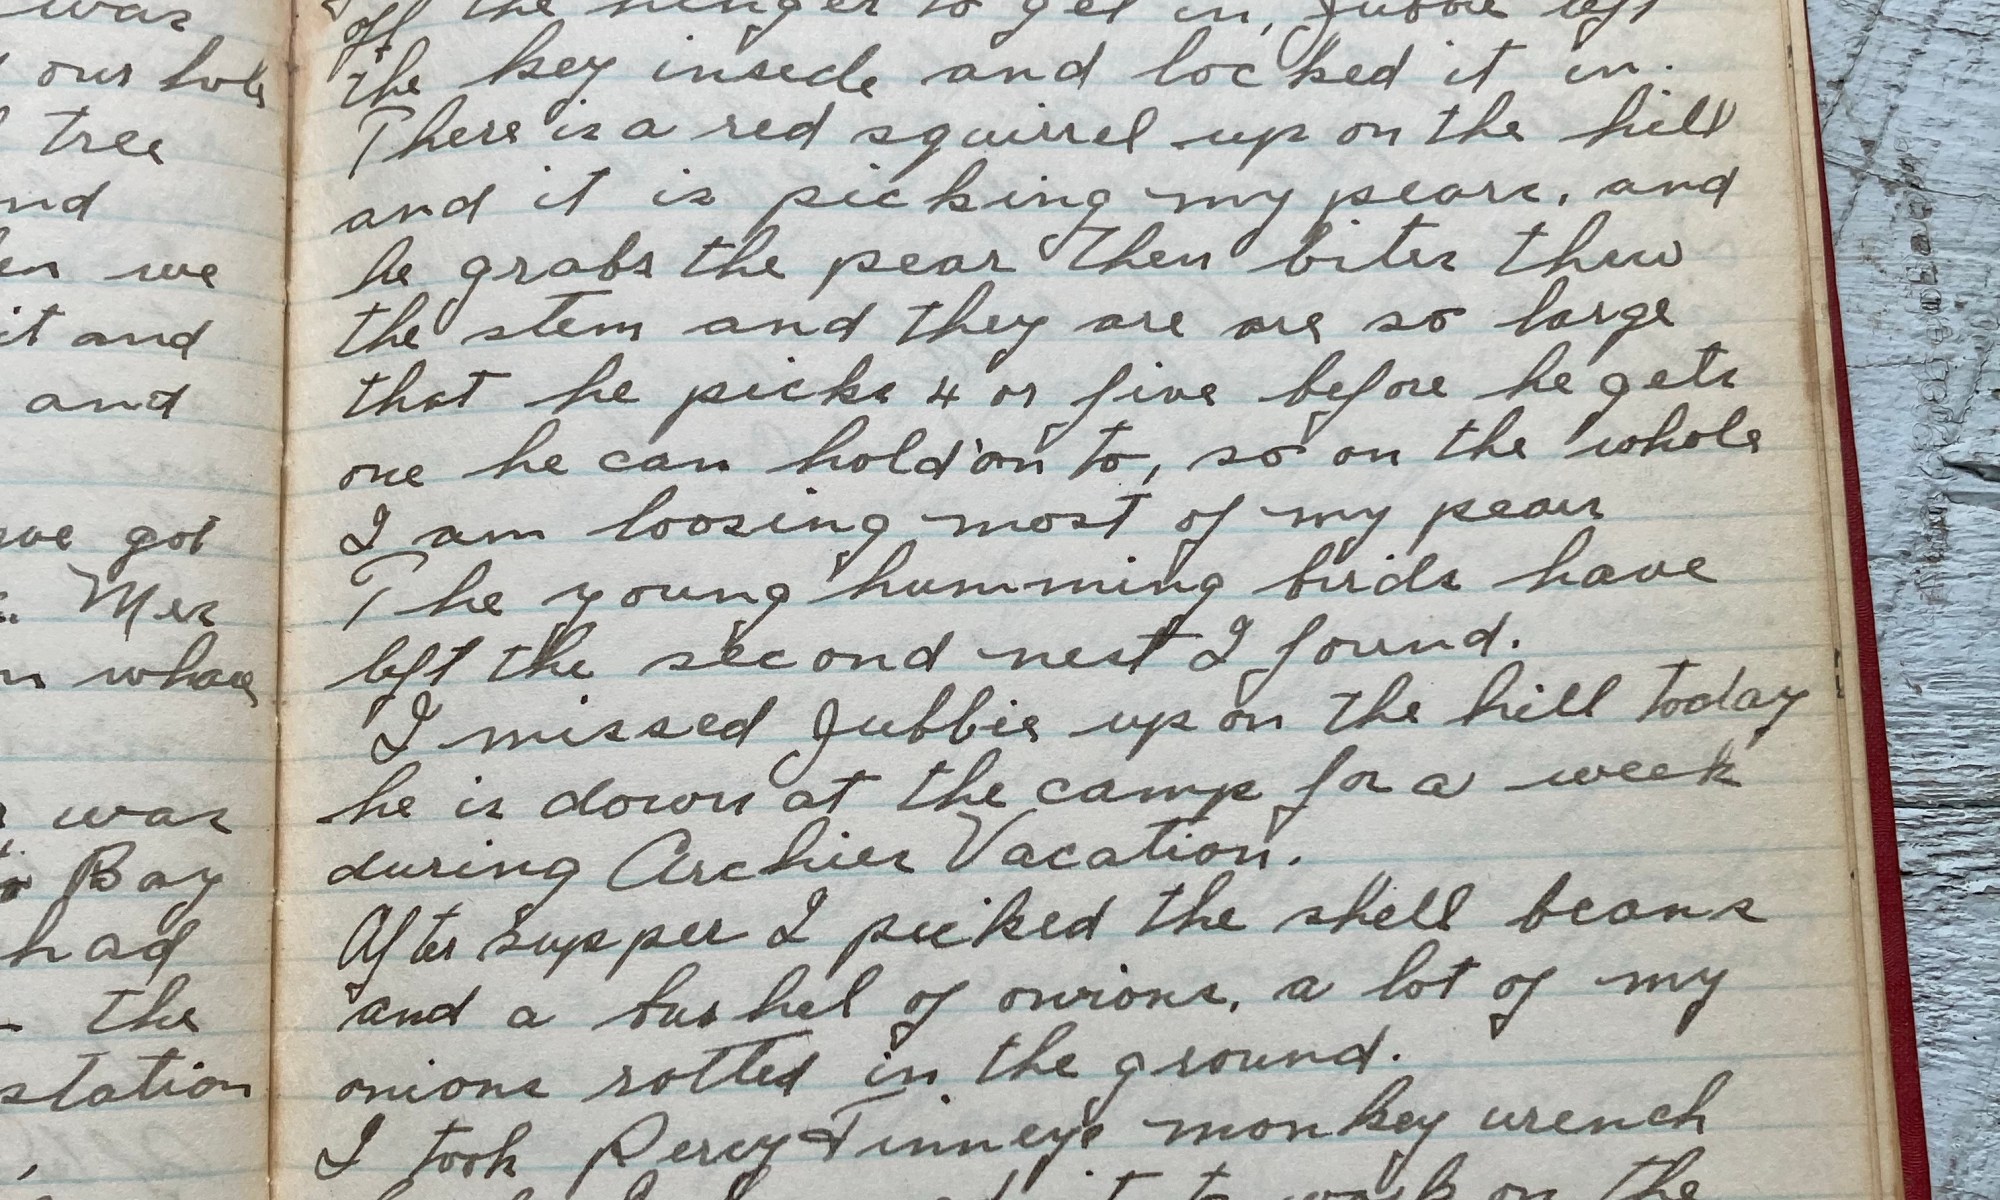 was
our hole
tree
and
we
it and
and
got
Mer
was
Bay
had
the
station
off the hinger to get in, Jubbie left
the key inside and locked it in.
There is a red squirrel up on the hill
and it is picking my pears, and
he grabs the pear then bites thru
the stem and they are are so large
that he picks 4 or five before he gets
one he can hold on to, so on the whole
I am loosing most of my pears
The young humming birds have
left the second nest I found.
I missed Jubbie up on the hill today
he is down at the camp for a week
during Archies Vacation.
After supper I picked the shell beans
and a bushel of onions, a lot of my
onions rotted in the ground.
I took Percy Finneys monkey wrench
it to work on the